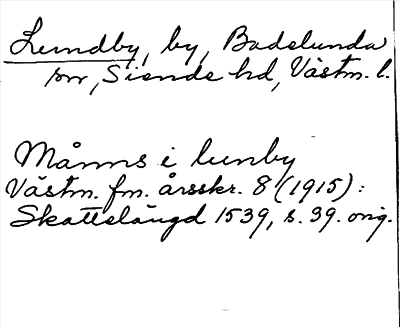 Lundby, by, Badelunda
sn, Siende hd, Västm. l.
Måns i lunby
Västm. fm. årsskr. 8 (1915):
Skattelängd 1539, s. 39. orig.